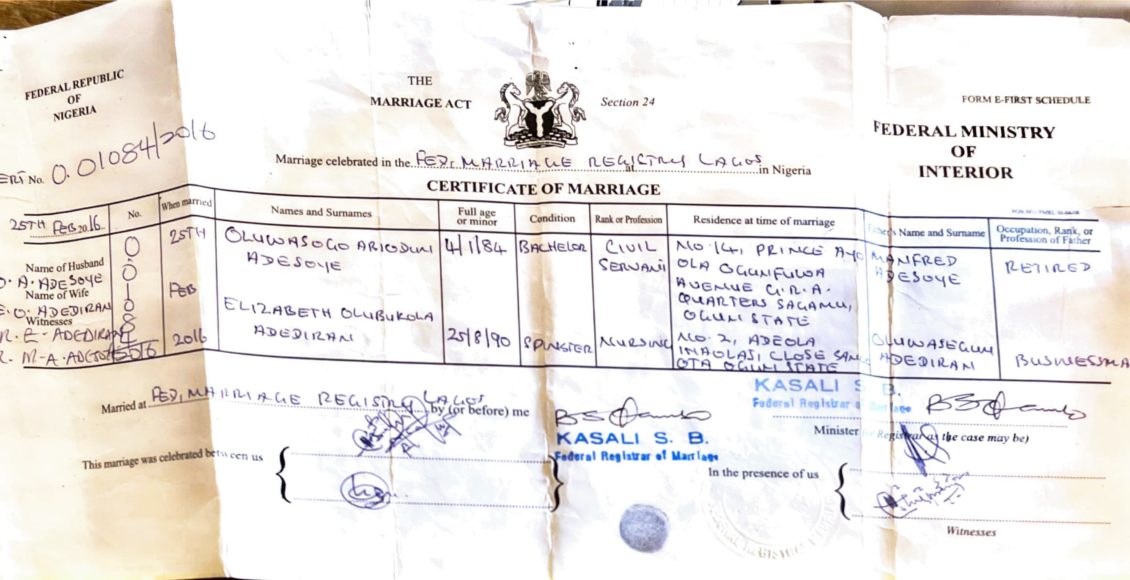 FEDERAL REPUBLIC
OF
NIGERIA
THE
MARRIAGE ACT
Section 24
FORM E-FIRST SCHEDULE
FEDERAL MINISTRY
OF
INTERIOR
ERT No. 0.01084/2016
Marriage celebrated in the FED, MARRIAGE REGISTRY LAGOS at in Nigeria
CERTIFICATE OF MARRIAGE
25TH FEB 2016
No.
When married
Names and Surnames
Full age or minor
Condition
Rank or Profession
Residence at time of marriage
Father's Name and Surname
Occupation, Rank, or Profession of Father
Name of Husband
O. A. ADESOYE
Name of Wife
E. O. ADEDIRAN
Witnesses
R. E. ADEDIRAN
2016
25TH
FEB
2016
OLUWASOGO ABIODUN
ADESOYE
4/1/84
BACHELOR
CIVIL
SERVANT
NO. 14, PRINCE AYO
OLA OGUNFUWA
AVENUE G.R.A.
QUARTERS SAGAMU,
OGUN STATE
MANFRED
ADESOYE
RETIRED
ELIZABETH OLUBUKOLA
ADEDIRAN
25/8/90
SPINSTER
NURSING
NO. 2, ADEOLA
CLOSE
OTA OGUN STATE
OLUWASEGUN
ADEDIRAN
BUSINESSMA
Married at FED, MARRIAGE REGISTRY LAGOS by (or before) me
KASALI S. B.
Federal Registrar of Marriage
KASALI S. B.
Federal Registrar of Marriage
Minister (or Registrar as the case may be)
This marriage was celebrated between us
In the presence of us
Witnesses